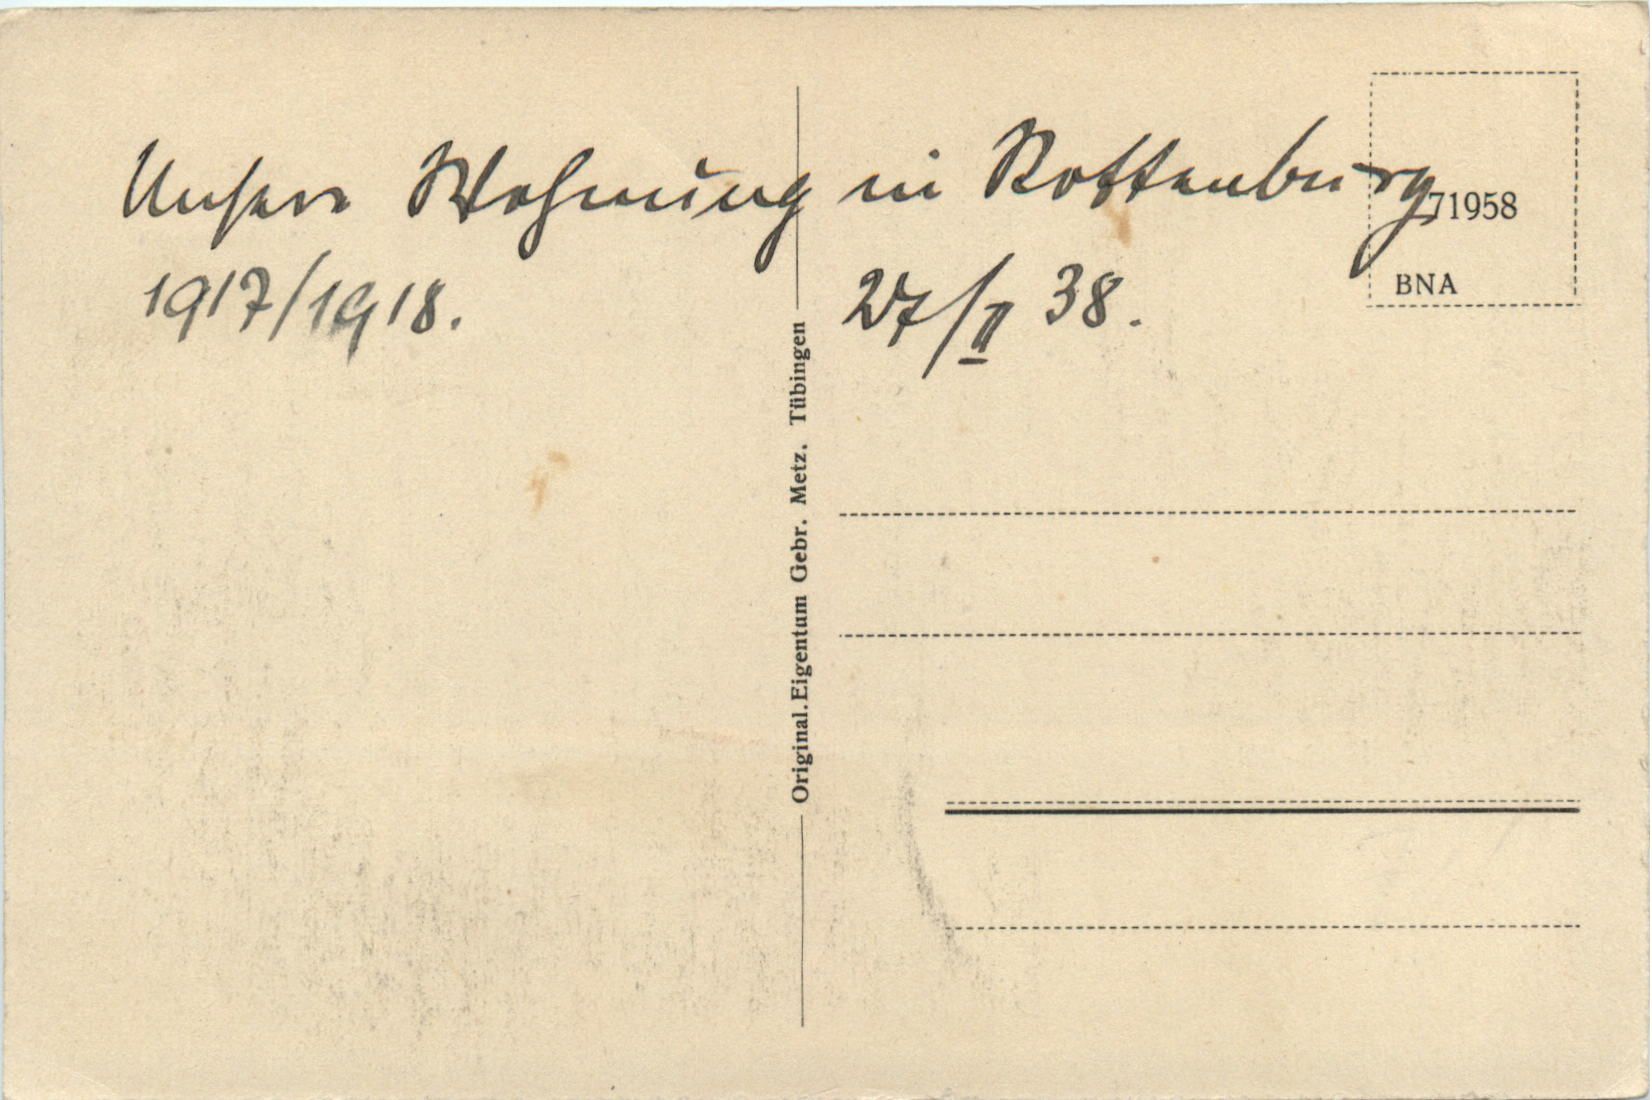 Unsere Wohnung in Rottenburg
1917/1918. 27/II 38.
71958
BNA
Original.Eigentum Gebr. Metz. Tübingen